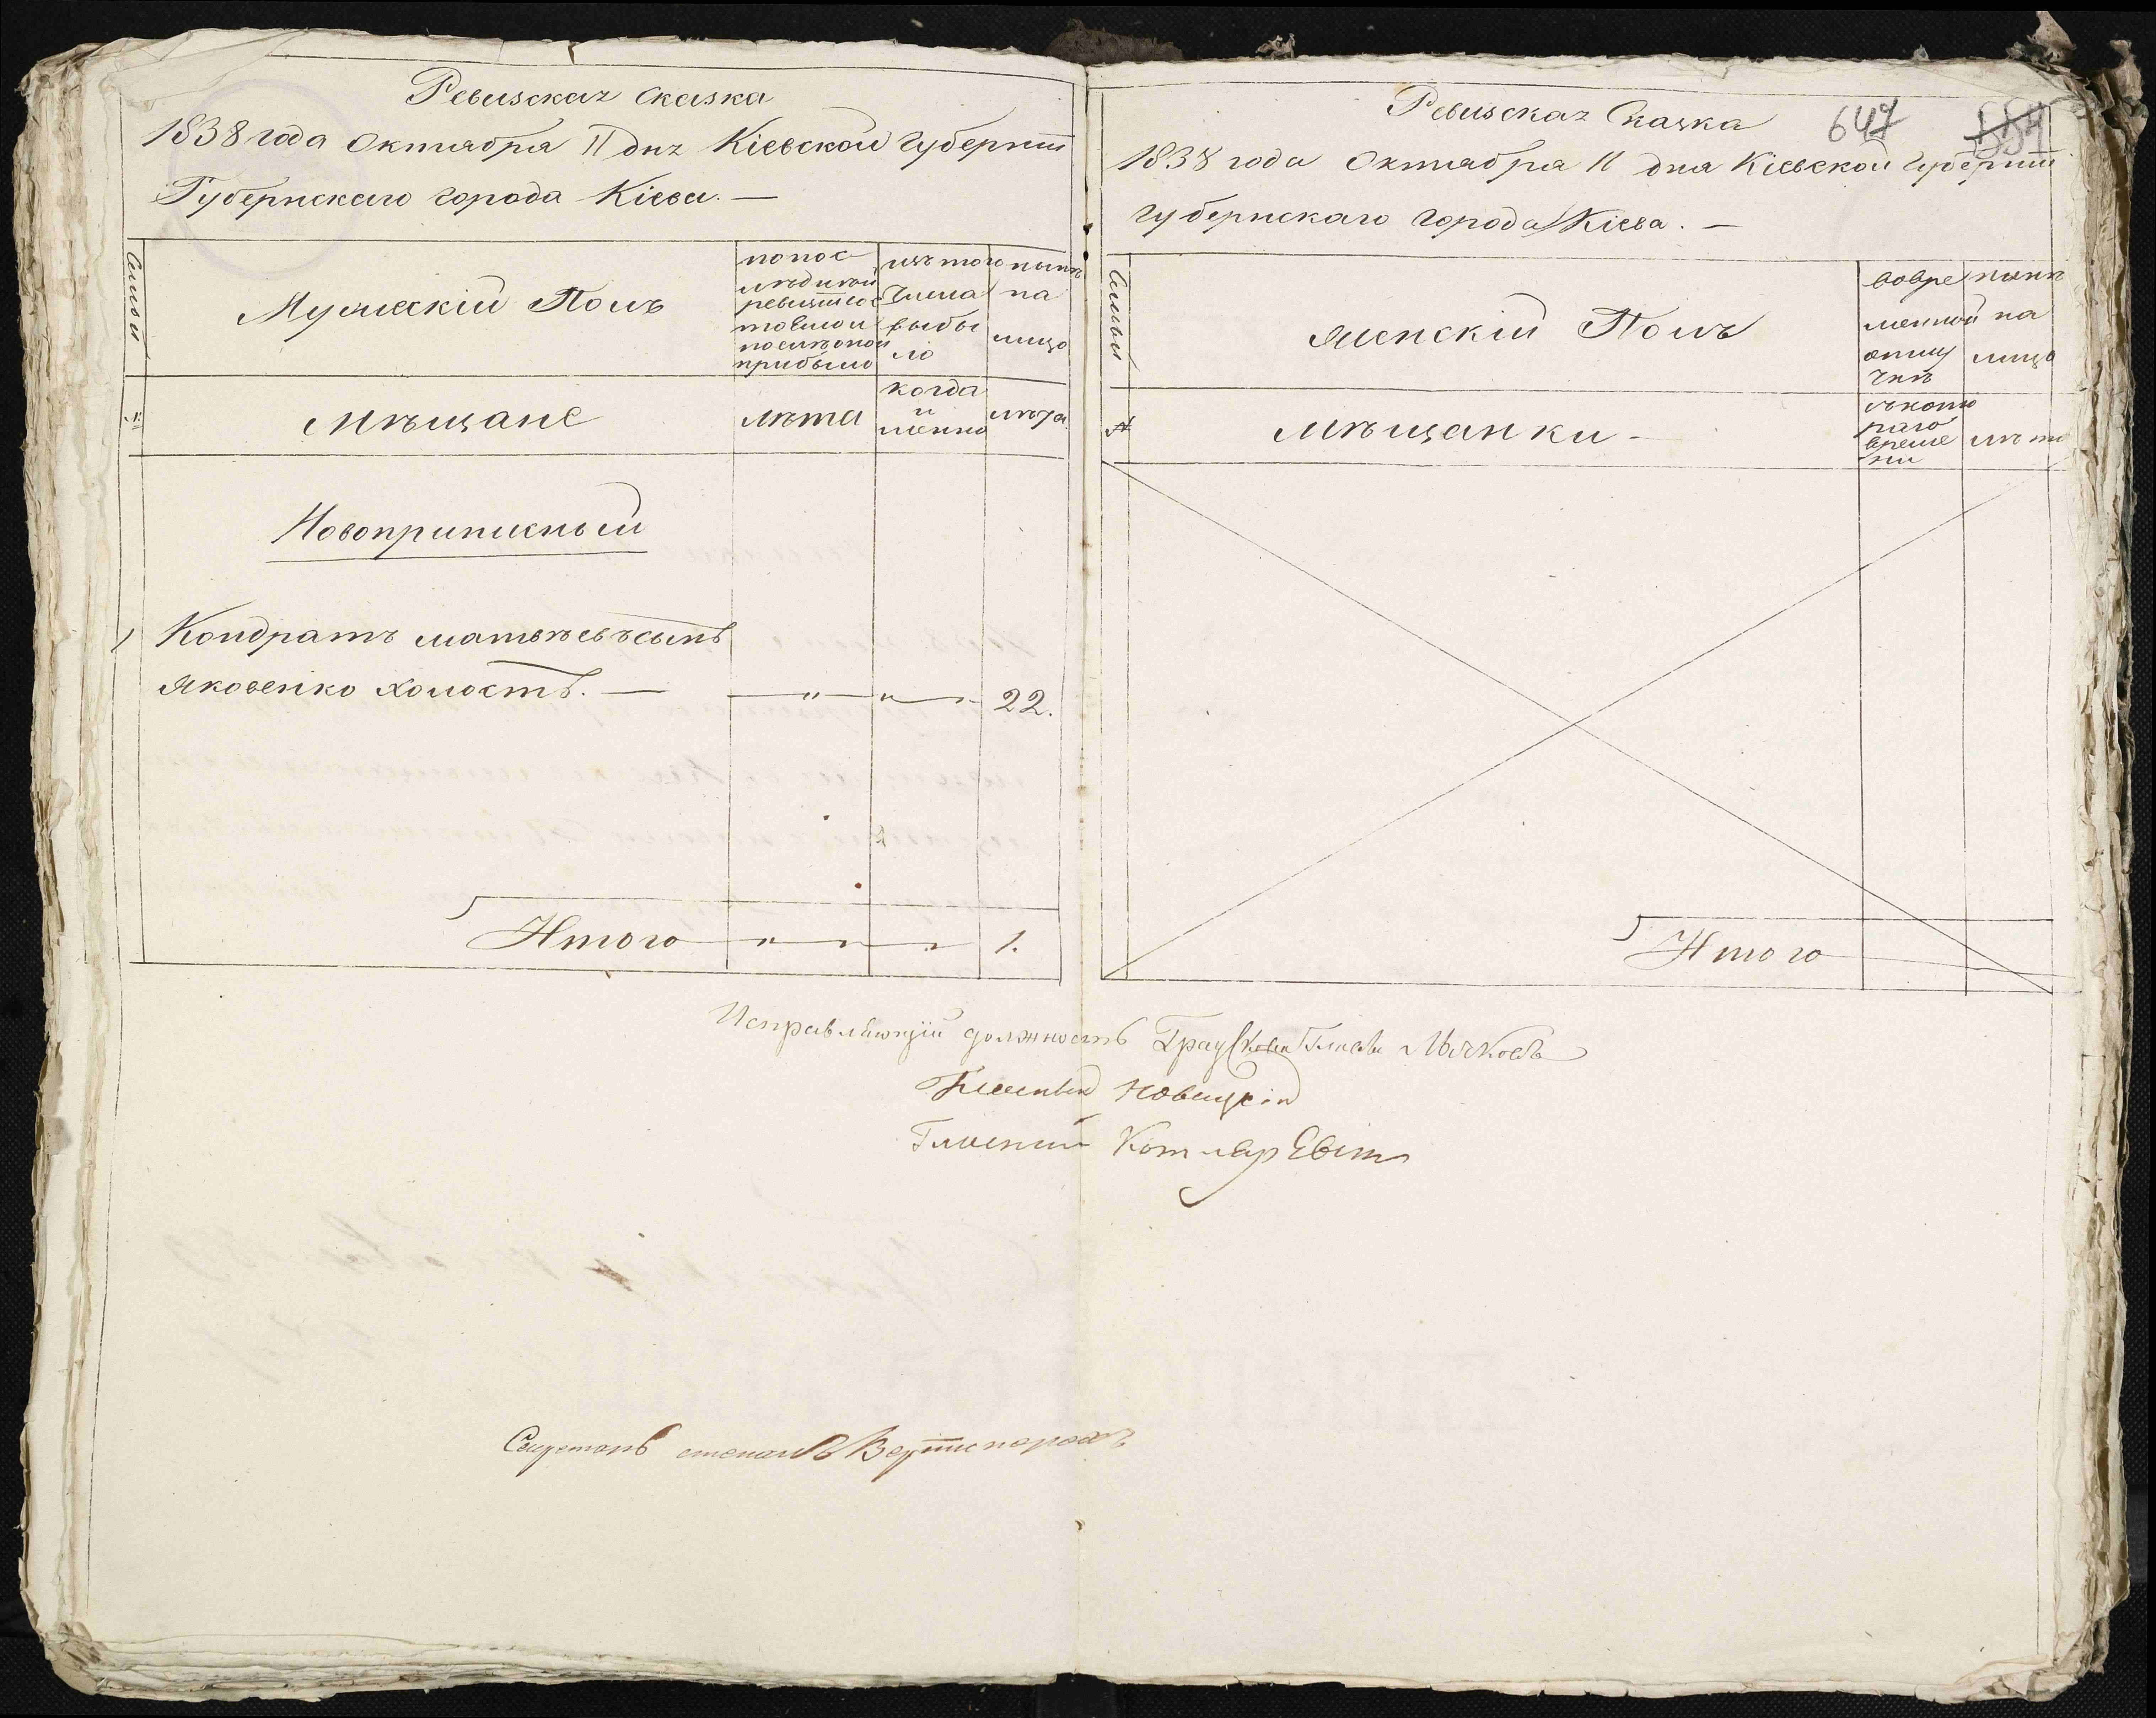 Ревизская Сказка
1838 года Октября 11 дня Кіевской Губерніи
Губернскаго города Кіева. —
Семьи
Мужескій Полъ
по пос
лѣдней
ревизіи сос
тояло и
послѣ оной
прибыло
изъ того
числа
выбы
ло
нынѣ
на
лицо
№
Мѣщане
лѣта
когда
и
менно
лѣта
Новоприписный
1 Кондратъ Матвѣевъ сынъ
Яковенко холостъ. — 22.
Итого 1.
Ревизская Сказка
647
1838 года Октября 11 дня Кіевской Губерніи
Губернскаго города Кіева. —
Семьи
Женскій Полъ
во вре
менной
отлу
чкѣ
нынѣ
на
лицо
№
Мѣщанки —
съ кото
раго
време
ни
лѣта
Итого
Исправляющій должность Град Главы
Гласный Новицкій
Гласный Котляревич
степанъ